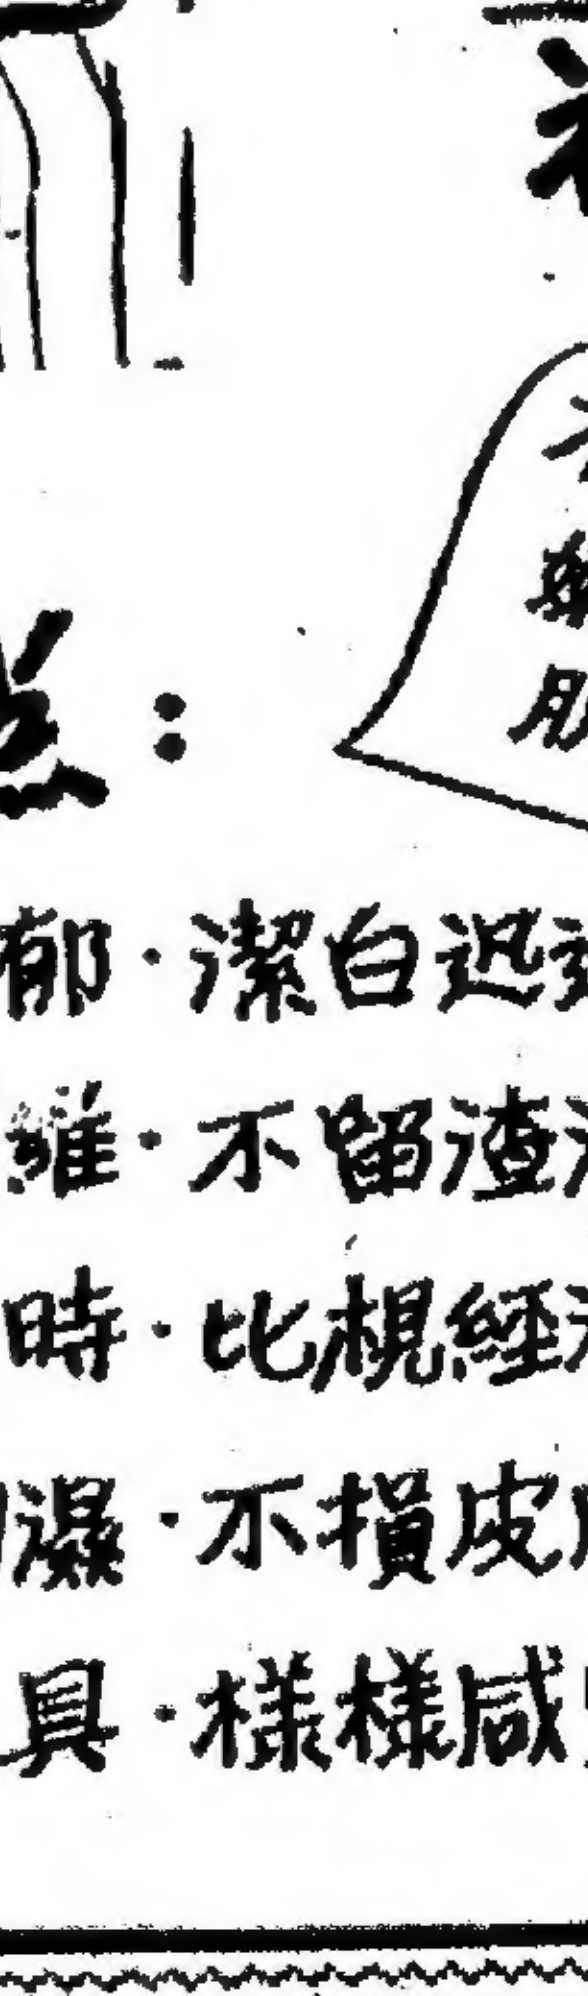 点：
郁·潔白迅速
維·不留渣
時·比梘經
濕·不損皮
具·樣樣咸